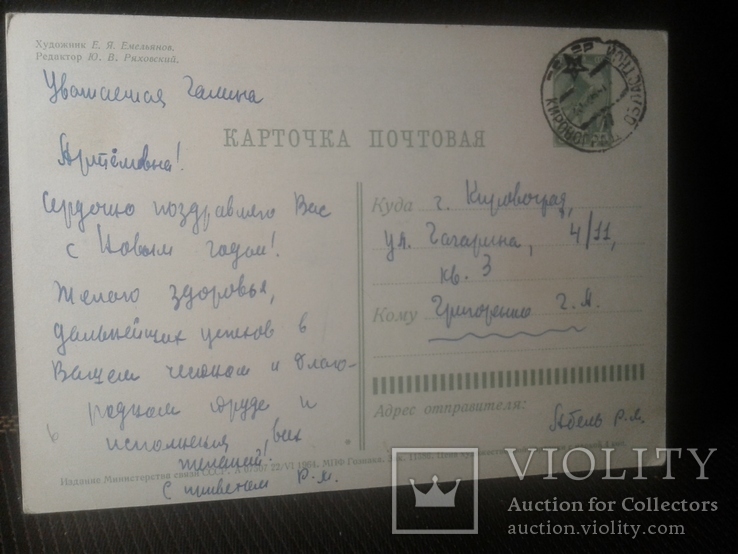 Художник Е. Я. Емельянов.
Редактор Ю. В. Ряховский.
Уважаемая Галина
Артёмовна!
Сердечно поздравляю Вас
с Новым годом!
Желаю здоровья,
дальнейших успехов в
Вашем честном и благо-
родном труде и
исполнения всех
желаний!
С приветом Р.М.
КАРТОЧКА ПОЧТОВАЯ
Куда г. Кировоград,
ул. Гагарина, 4/11,
кв. 3
Кому Григоренко Г. А.
Адрес отправителя:
Абель Р.М.
КИРОВОГРАД
Издание Министерства связи СССР. 22/VI 1964. МПФ Гознака.
VIOLITY
Auction for Collectors
auction.violity.com